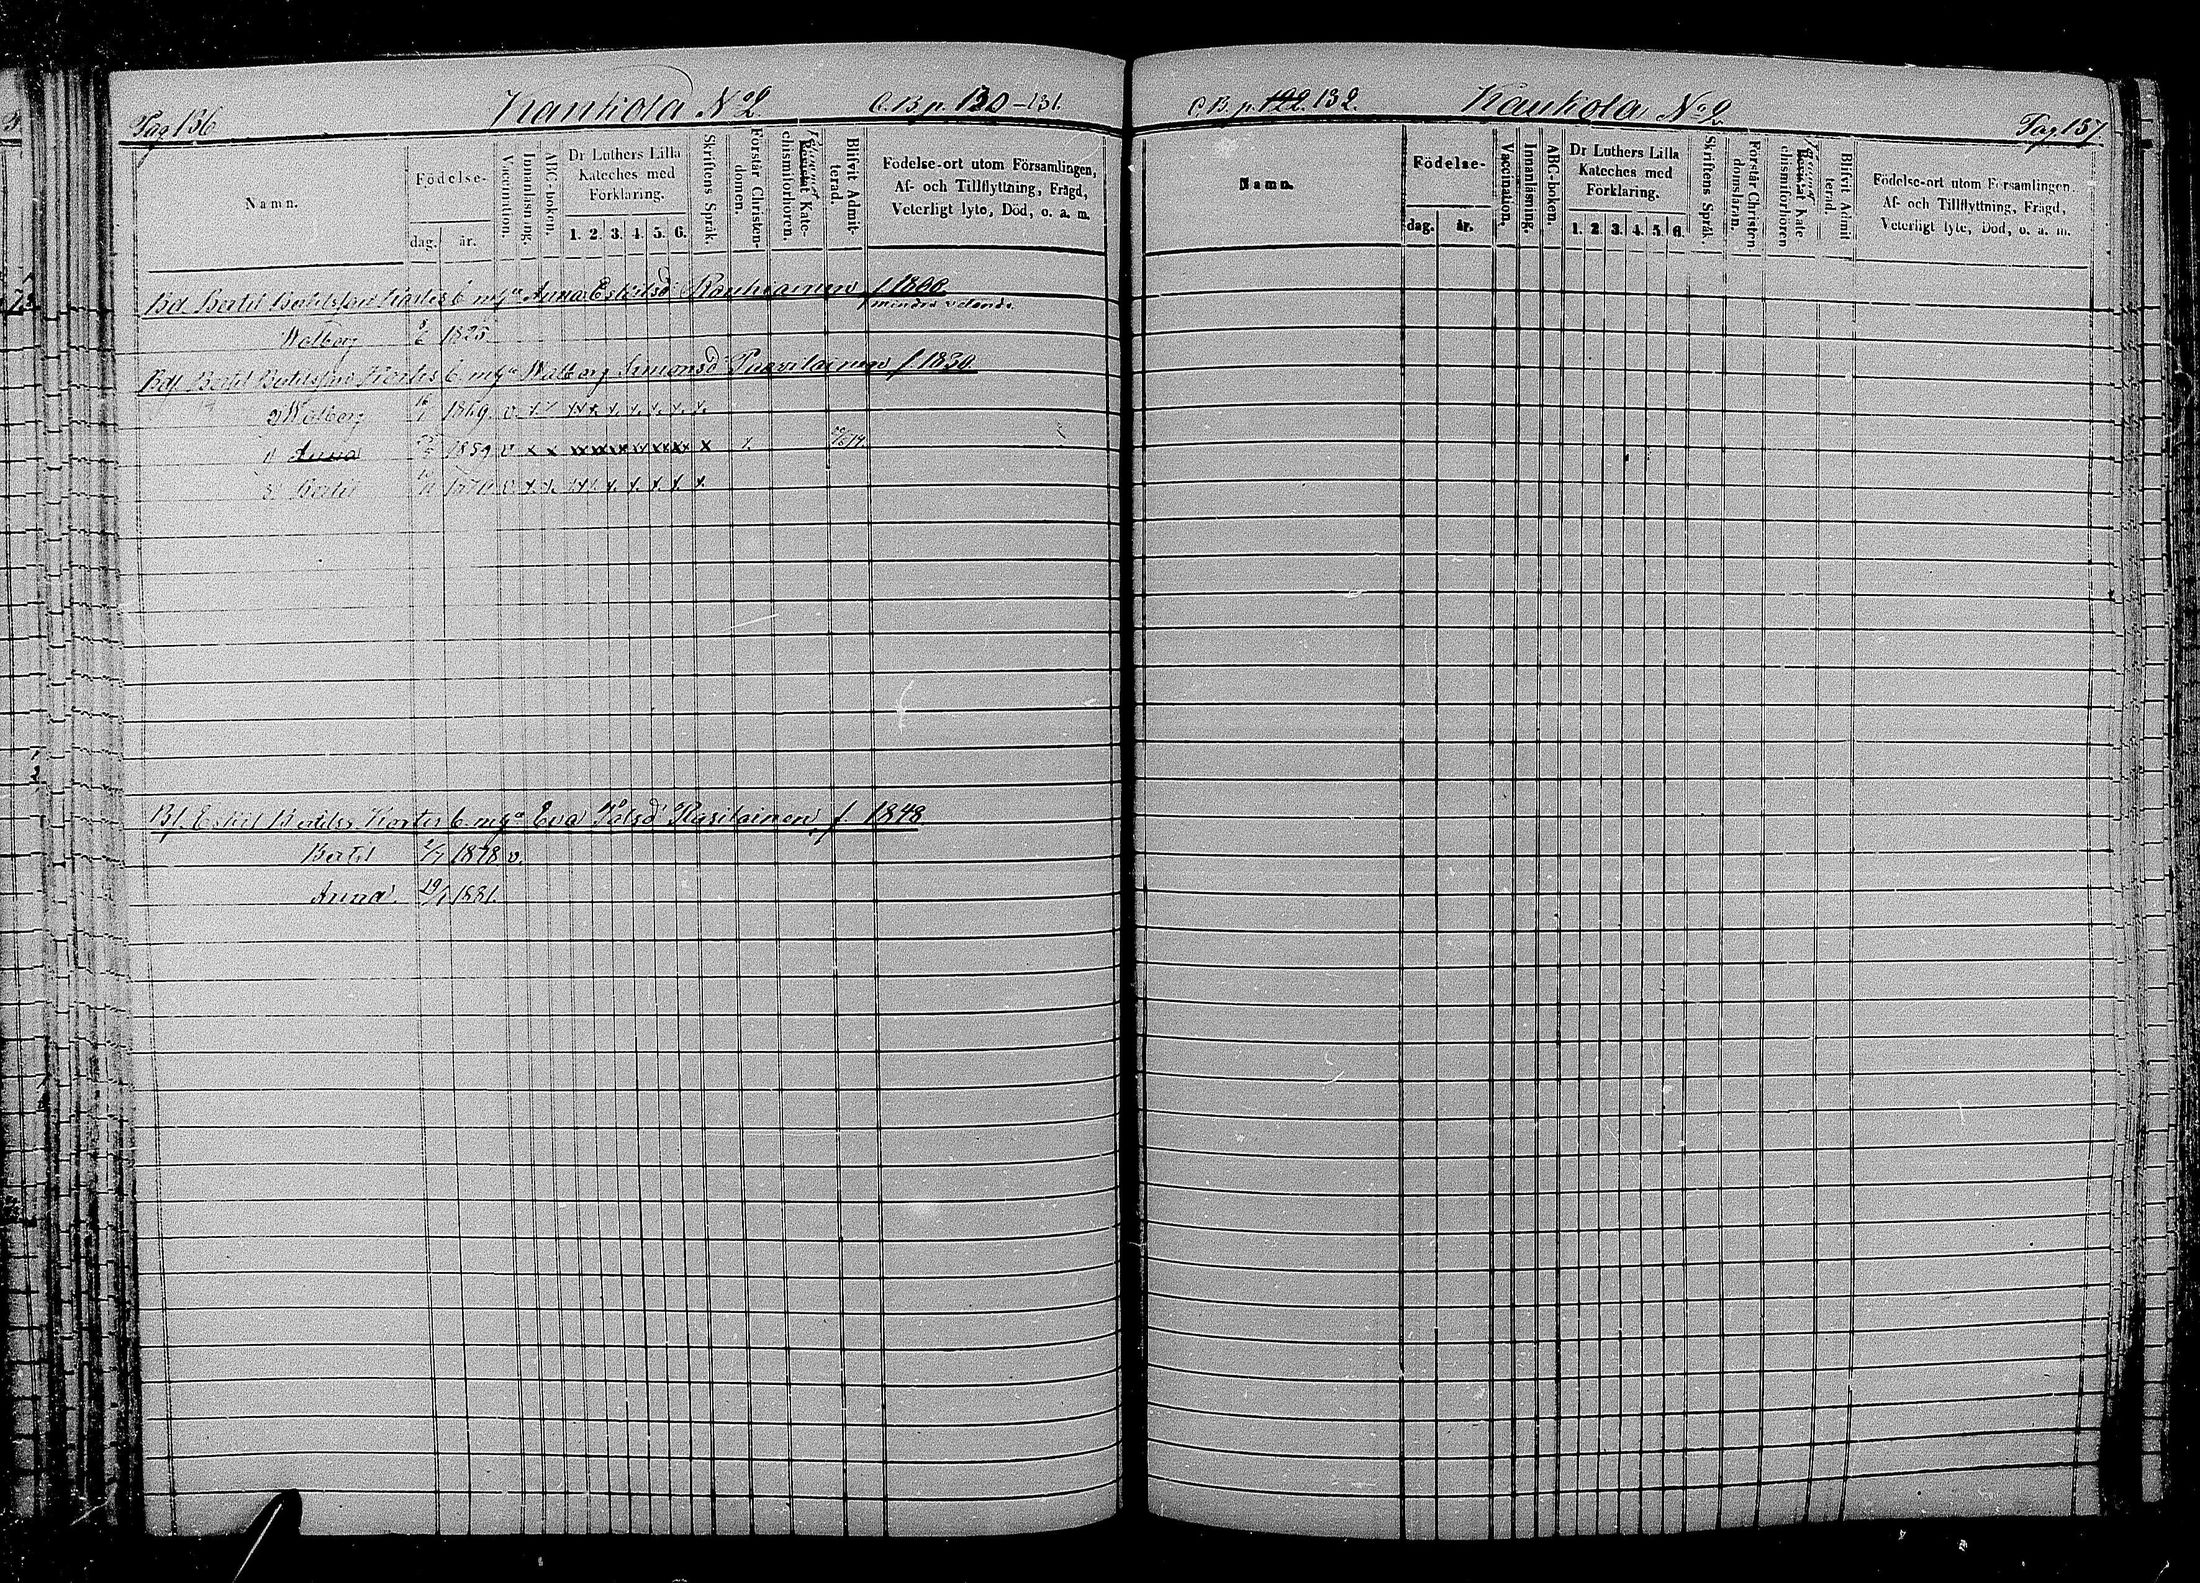 Pag 136
Kaukola No 2
C. B. p. 130-131.
Namn.
Födelse-
dag.
år.
Vaccination.
Innanläsning.
ABC-boken.
Dr Luthers Lilla
Kateches med
Förklaring.
1. 2. 3. 4. 5. 6.
Skriftens Språk.
Förstår Christen-
domen.
Kate-
chismiförhören.
Blifvit Admit-
terad.
Födelse-ort utom Församlingen,
Af- och Tillflyttning, Frägd,
Veterligt lyte, Död, o. a. m.
Bd. Bertil Bertilsson Kortes E. mga Anna Eskilsd Raukiainen f.
mindre vetande.
Walborg 1825
Bdl Bertil Bertilsson Kortes E. mga Walborg Simonsd f. 1830
Walborg 1869 v. x x x x x x x x x
Anna 1859 v x x x x x x x x x
Bertil v. x x x x x x x x x
Bf. Eskil Bertilss Kortes E. mga Eva Pålsd Rasilainen, f. 1848
Bertil 2/7 1878 v.
Anna. 19/1 1881.
C. B. p. 122. 132.
Kaukola No 2
Pag 137.
Namn.
Födelse-
dag.
år.
Vaccination.
Innanläsning.
ABC-boken.
Dr Luthers Lilla
Kateches med
Förklaring.
1. 2. 3. 4. 5. 6.
Skriftens Språk.
Förstår Christen-
domsläran.
Kate
chismiförhören
Blifvit Admit
terad.
Födelse-ort utom Församlingen.
Af- och Tillflyttning, Frägd,
Veterligt lyte, Död, o. a. m.